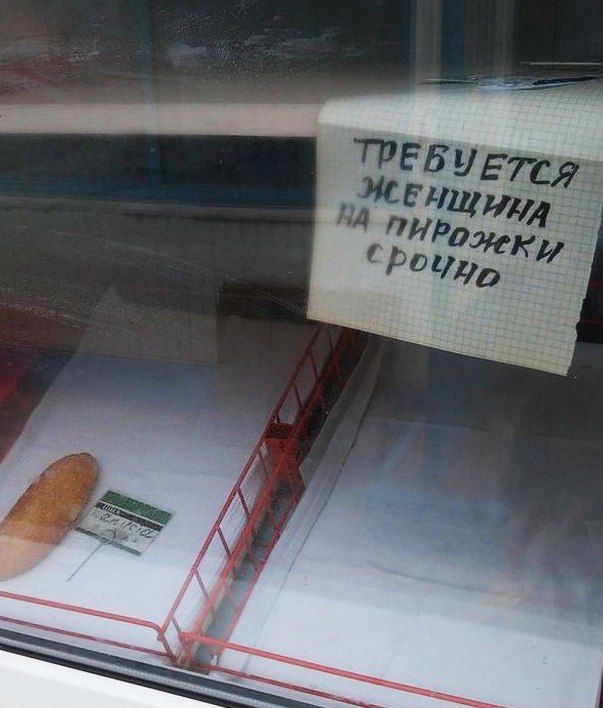 ТРЕБУЕТСЯ
ЖЕНЩИНА
НА ПИРОЖКИ
срочно